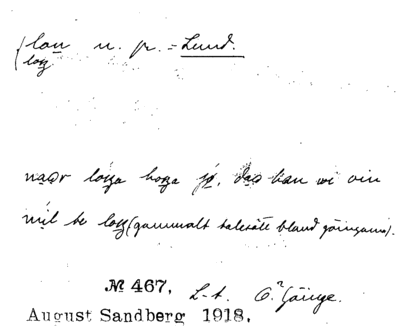 lan n. pr. = Lund.
naår hoga jé, då kan wi ain
mil te (gammalt talesätt bland göingarna).
№ 467. L-t. Ö. Göinge.
August Sandberg 1918.